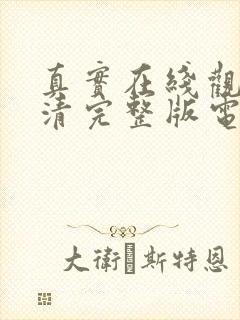 真實在綫觀
清完整版電
大衛斯特恩